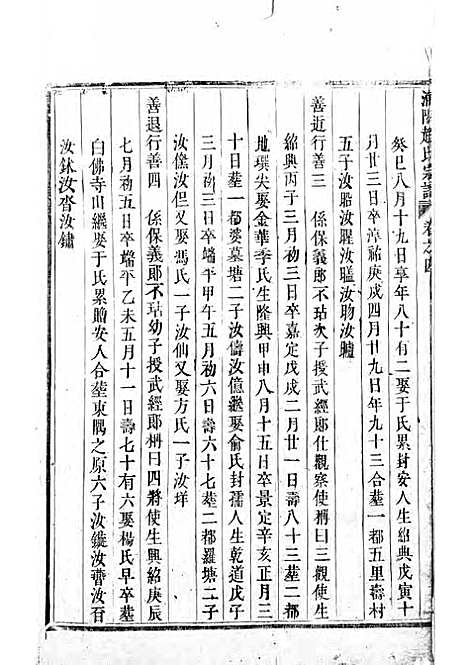 浦陽趙氏宗譜 卷之四
癸巳八月十九日享年八十有二娶于氏累封安人生紹興戊寅十
月廿三日卒淳祐庚戌四月廿九日年九十三合塟一都五里壽村
五子汝胎汝腥汝膃汝肕汝臚
善近行善三 係保義郎不玷次子授武經郎仕觀察使稱曰三觀使生
紹興丙子三月初三日卒嘉定戊戌二月廿一日壽八十三塟二都
地墺尖娶金華季氏生隆興甲申八月十五日卒景定辛亥正月三
十日塟一都婆墓塘二子汝儔汝億繼娶俞氏封孺人生乾道戊子
三月初三日卒端平甲午五月初六日六十七塟二都羅塘二子
汝儻汝但又娶馮氏一子汝仙又娶方氏一子汝垟
善退行善四 係保義郎不玷幼子授武經郎稱曰四將使生興紹庚辰
七月初五日卒端平乙未五月十一日壽七十有六娶楊氏早卒塟
白佛寺山繼娶于氏累贈安人合塟東隅之原六子汝鏇汝曹汝百
汝鉥汝沓汝鏽